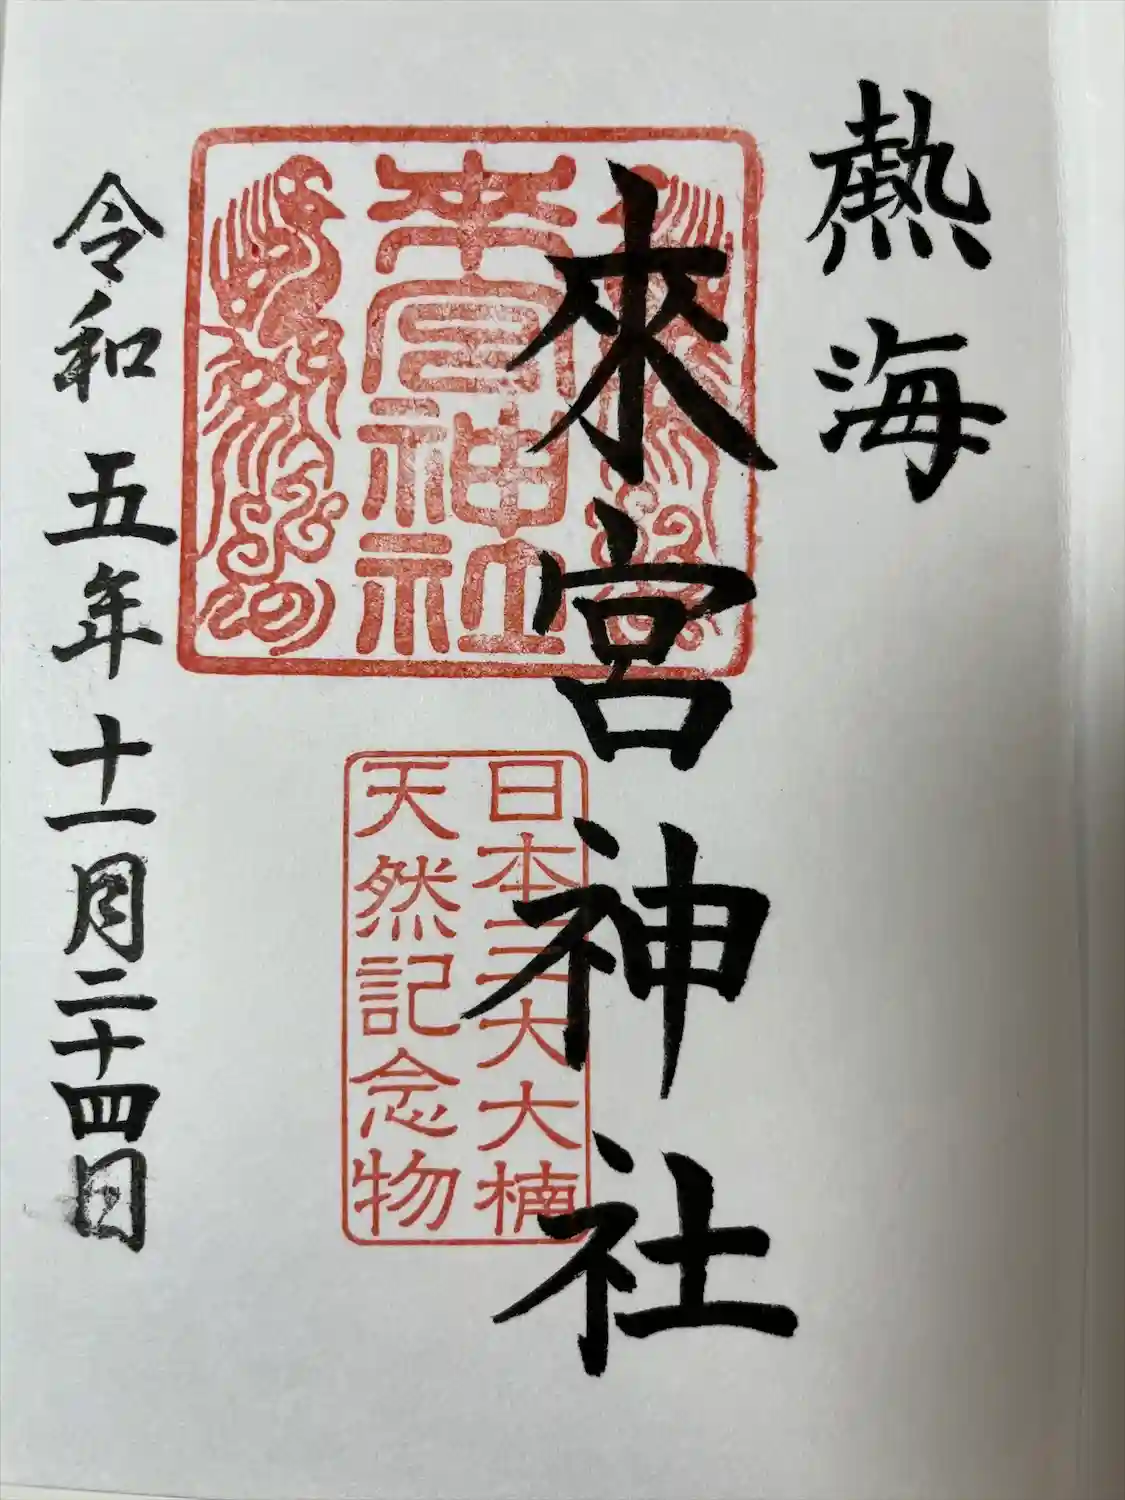 熱海
來宮神社
來宮神社
日本三大大楠
天然記念物
令和五年十一月二十四日